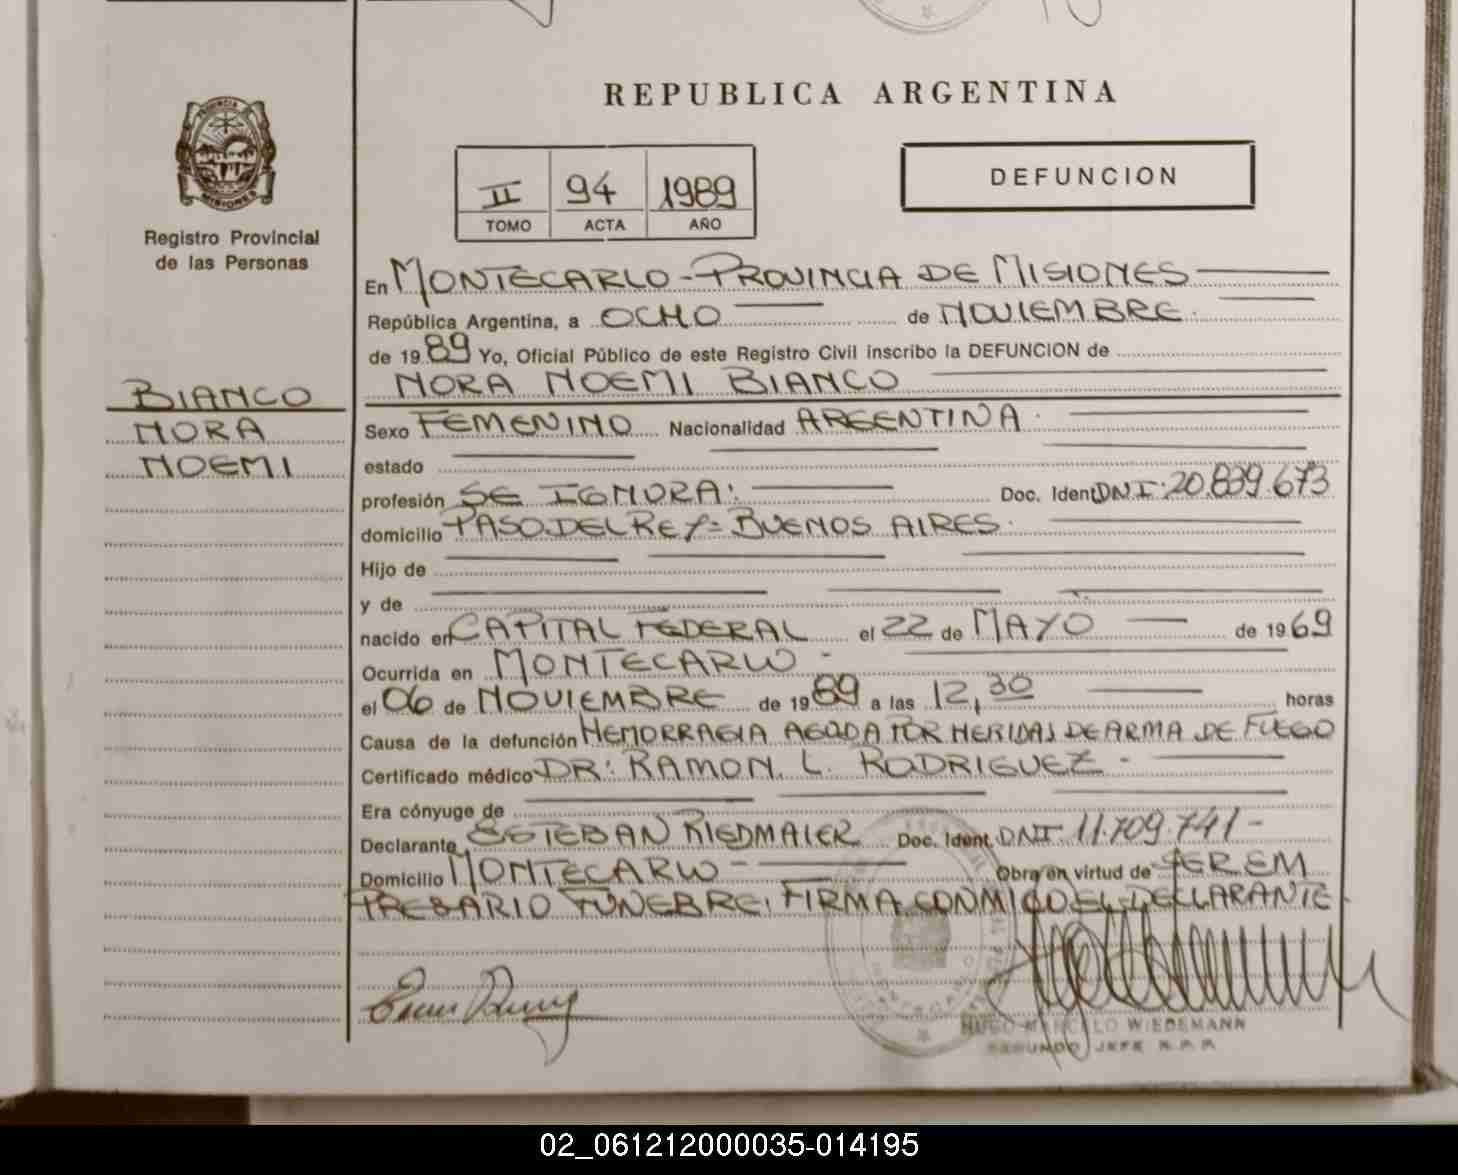 REPUBLICA ARGENTINA
PROVINCIA DE
MISIONES
Registro Provincial
de las Personas
II 94 1989
TOMO ACTA AÑO
DEFUNCION
En MONTECARLO - PROVINCIA DE MISIONES
República Argentina, a OCHO de NOVIEMBRE
de 1989 Yo, Oficial Público de este Registro Civil inscribo la DEFUNCION de
NORA NOEMI BIANCO
BIANCO
NORA
NOEMI
Sexo FEMENINO Nacionalidad ARGENTINA
estado
profesión SE IGNORA: Doc. Ident. DNI: 20.839.673
domicilio PASO DEL REY = BUENOS AIRES
Hijo de
y de
nacido en CAPITAL FEDERAL el 22 de MAYO de 1969
Ocurrida en MONTECARLO -
el 06 de NOVIEMBRE de 1989 a las 12,30 horas
Causa de la defunción HEMORRAGIA AGUDA POR HERIDAS DE ARMA DE FUEGO
Certificado médico DR: RAMON L. RODRIGUEZ -
Era cónyuge de
Declarante ESTEBAN RIEDMAIER Doc. Ident. DNI 11.709.741 -
Domicilio MONTECARLO - Obra en virtud de SER EM
PRESARIO FUNEBRE, FIRMA CONMIGO EL DECLARANTE
HUGO MARCELO WIEDEMANN
SEGUNDO JEFE R.P.P.
02_061212000035-014195